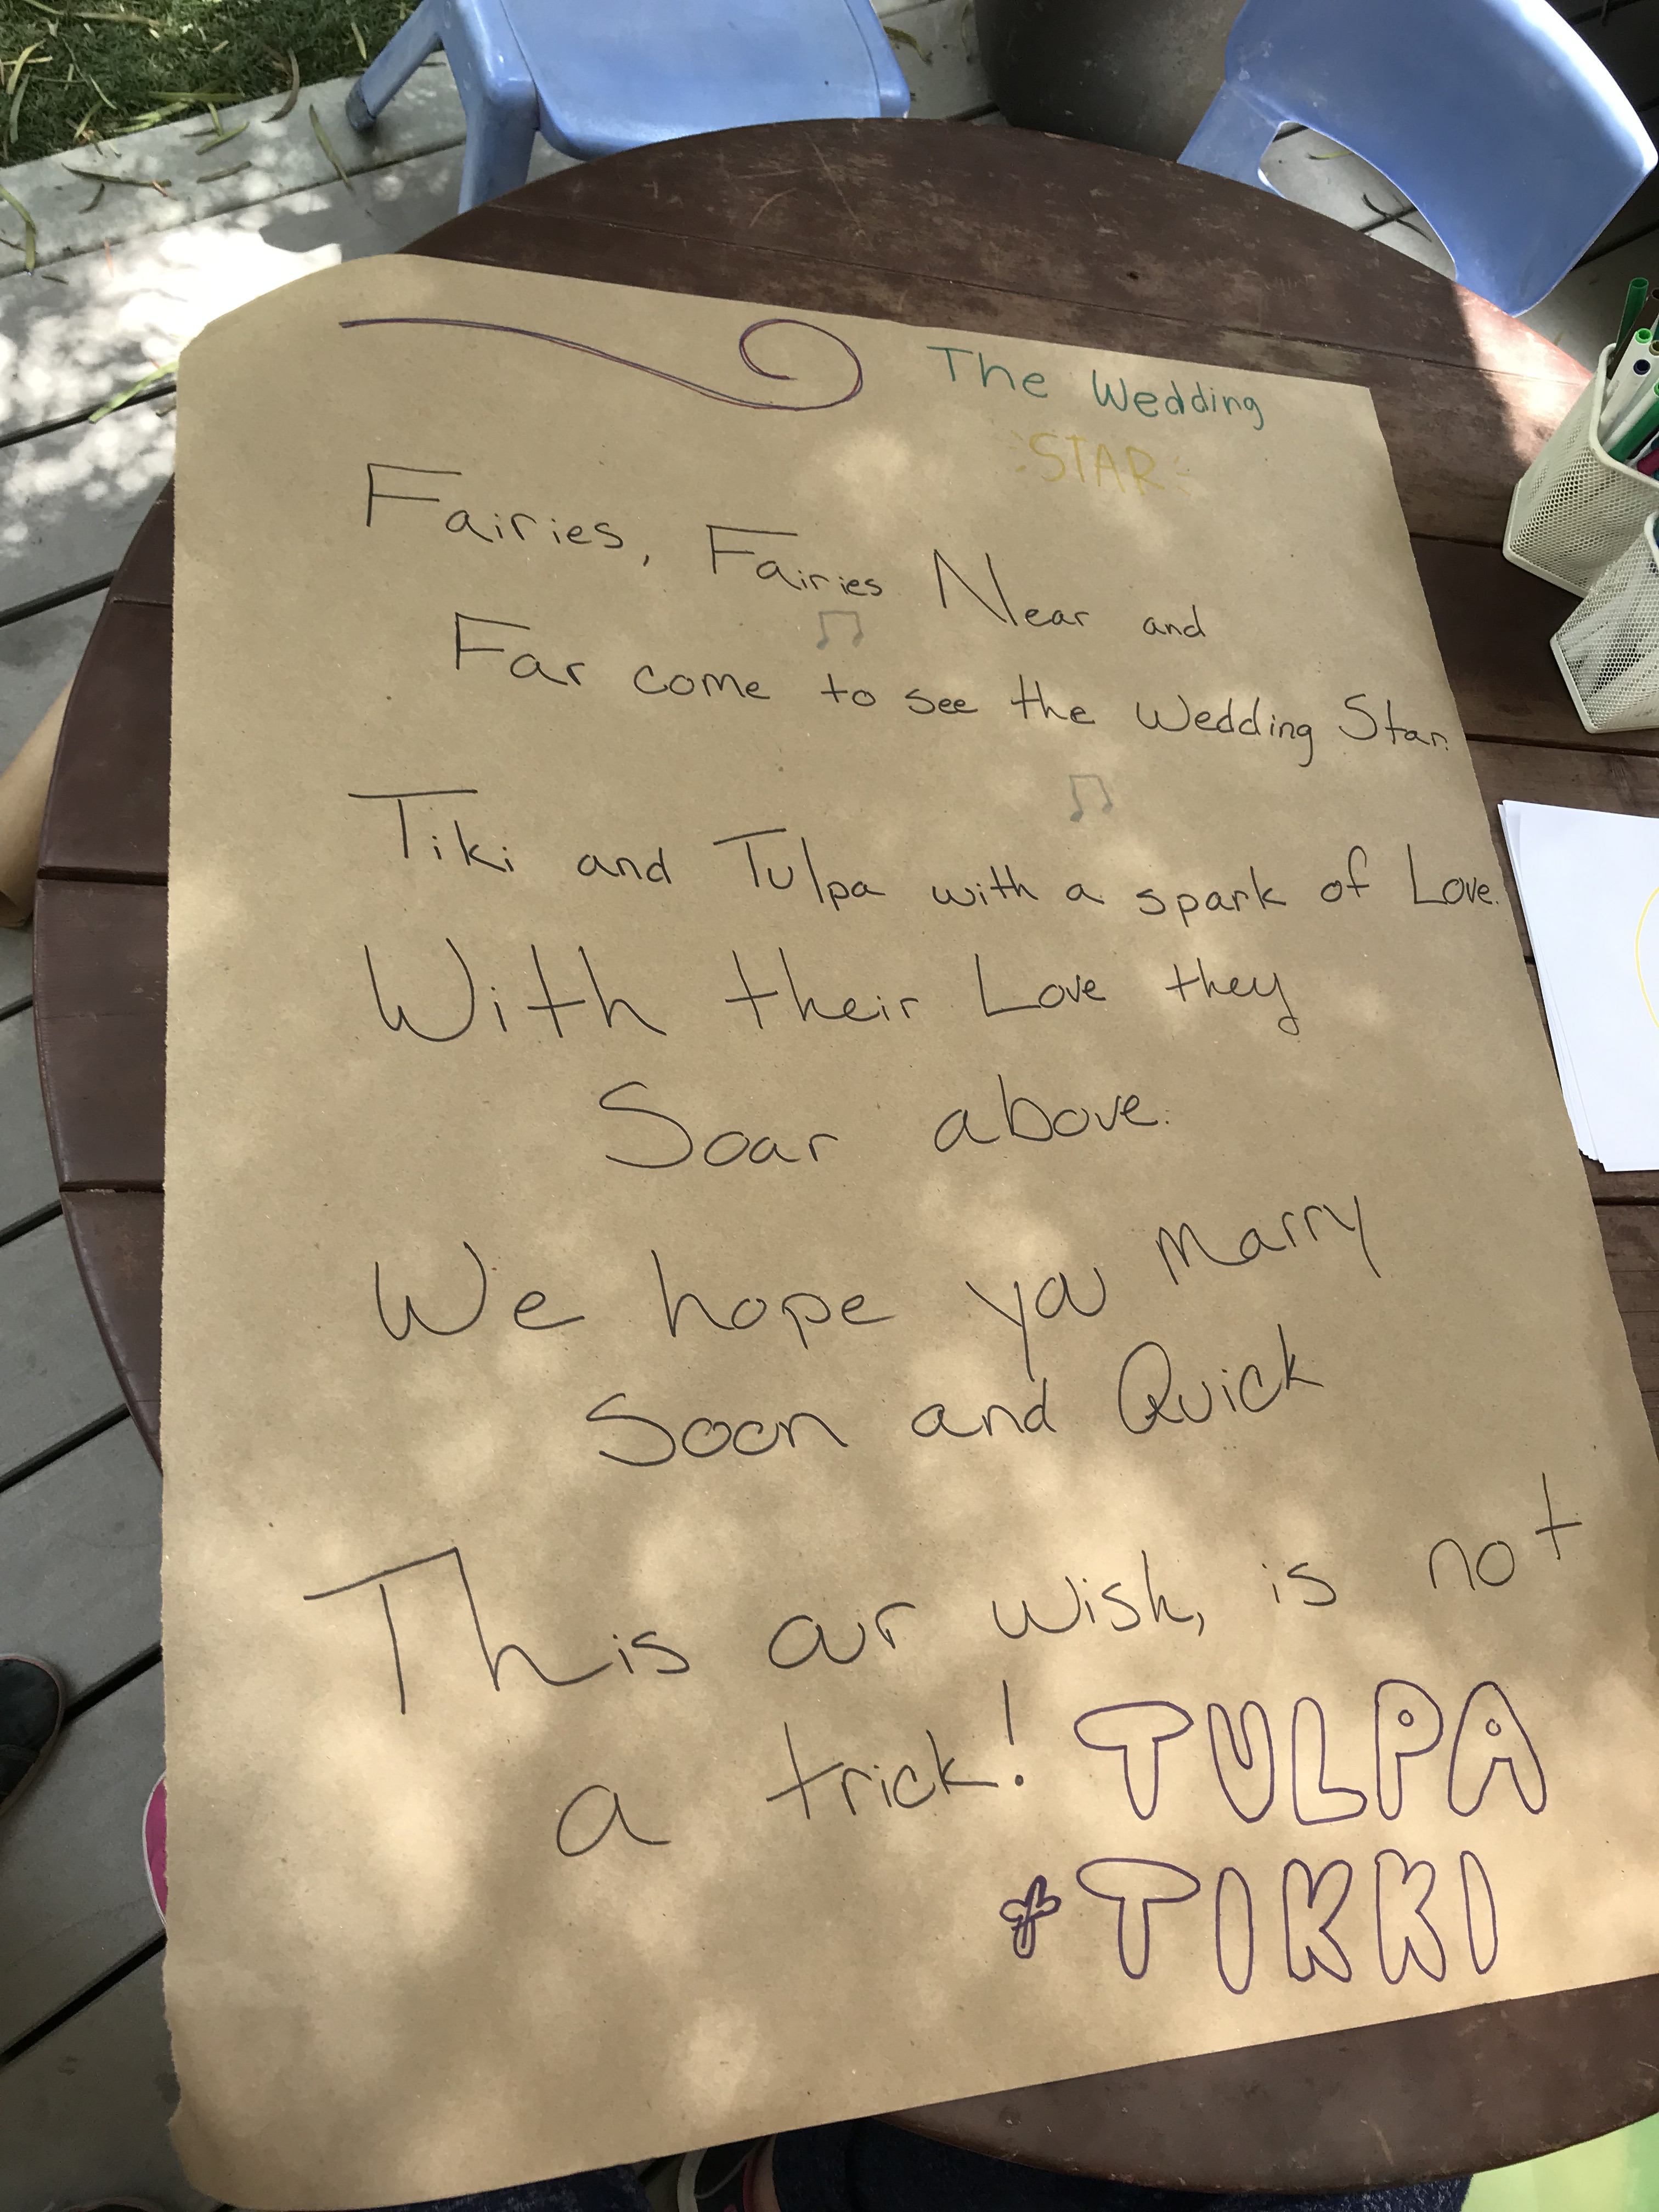 The Wedding
STAR
Fairies, Fairies Near and
Far come to see the Wedding Star.
Tiki and Tulpa with a spark of Love.
With their Love they
Soar above.
We hope you Marry
Soon and Quick
This our wish, is not
a trick!
TULPA
& TIKKI